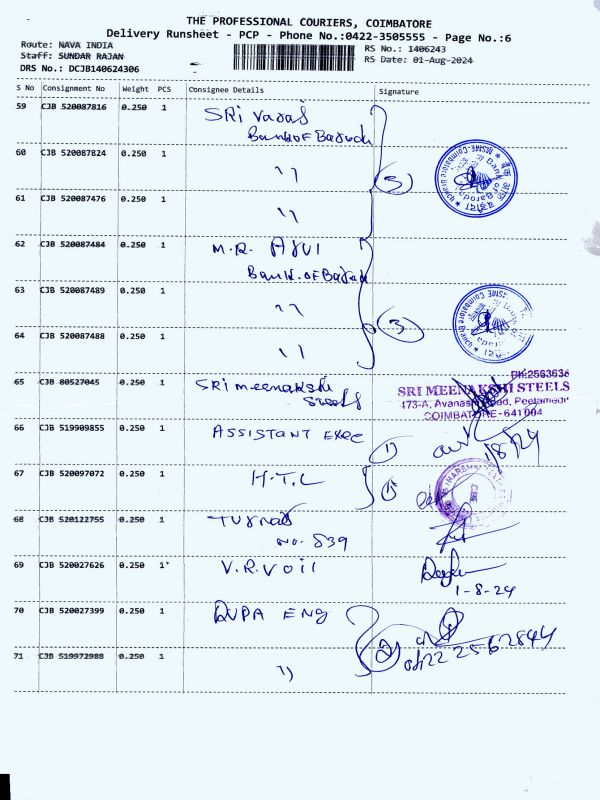 THE PROFESSIONAL COURIERS, COIMBATORE
Delivery Runsheet - PCP - Phone No.:0422-3505555 - Page No.:6
Route: NAVA INDIA
RS No.: 1406243
Staff: SUNDAR RAJAN
RS Date: 01-Aug-2024
DRS No.: DCJB140624306
S No Consignment No Weight PCS Consignee Details Signature
59 CJB 520087816 0.250 1 SRi
Bank of Baroda
60 CJB 520087824 0.250 1 ''
61 CJB 520087476 0.250 1 ''
62 CJB 520087484 0.250 1 M.R.
Bank.of Baroda
63 CJB 520087489 0.250 1 ''
64 CJB 520087488 0.250 1 '' 3
65 CJB 80527045 0.250 1 SRi meenakshi
Steels
SRI MEENAKSHI STEELS
173-A, Avanashi Road, Peelamedu
COIMBATORE - 641 004
66 CJB 519909855 0.250 1 ASSISTANT EXEC 1
1/8/24
67 CJB 520097072 0.250 1 H.T.L
68 CJB 520122755 0.250 1
No. 539
69 CJB 520027626 0.250 1 V.R.V oil
1-8-24
70 CJB 520027399 0.250 1 RUPA ENG
2
0422 2562844
71 CJB 519972988 0.250 1 ''